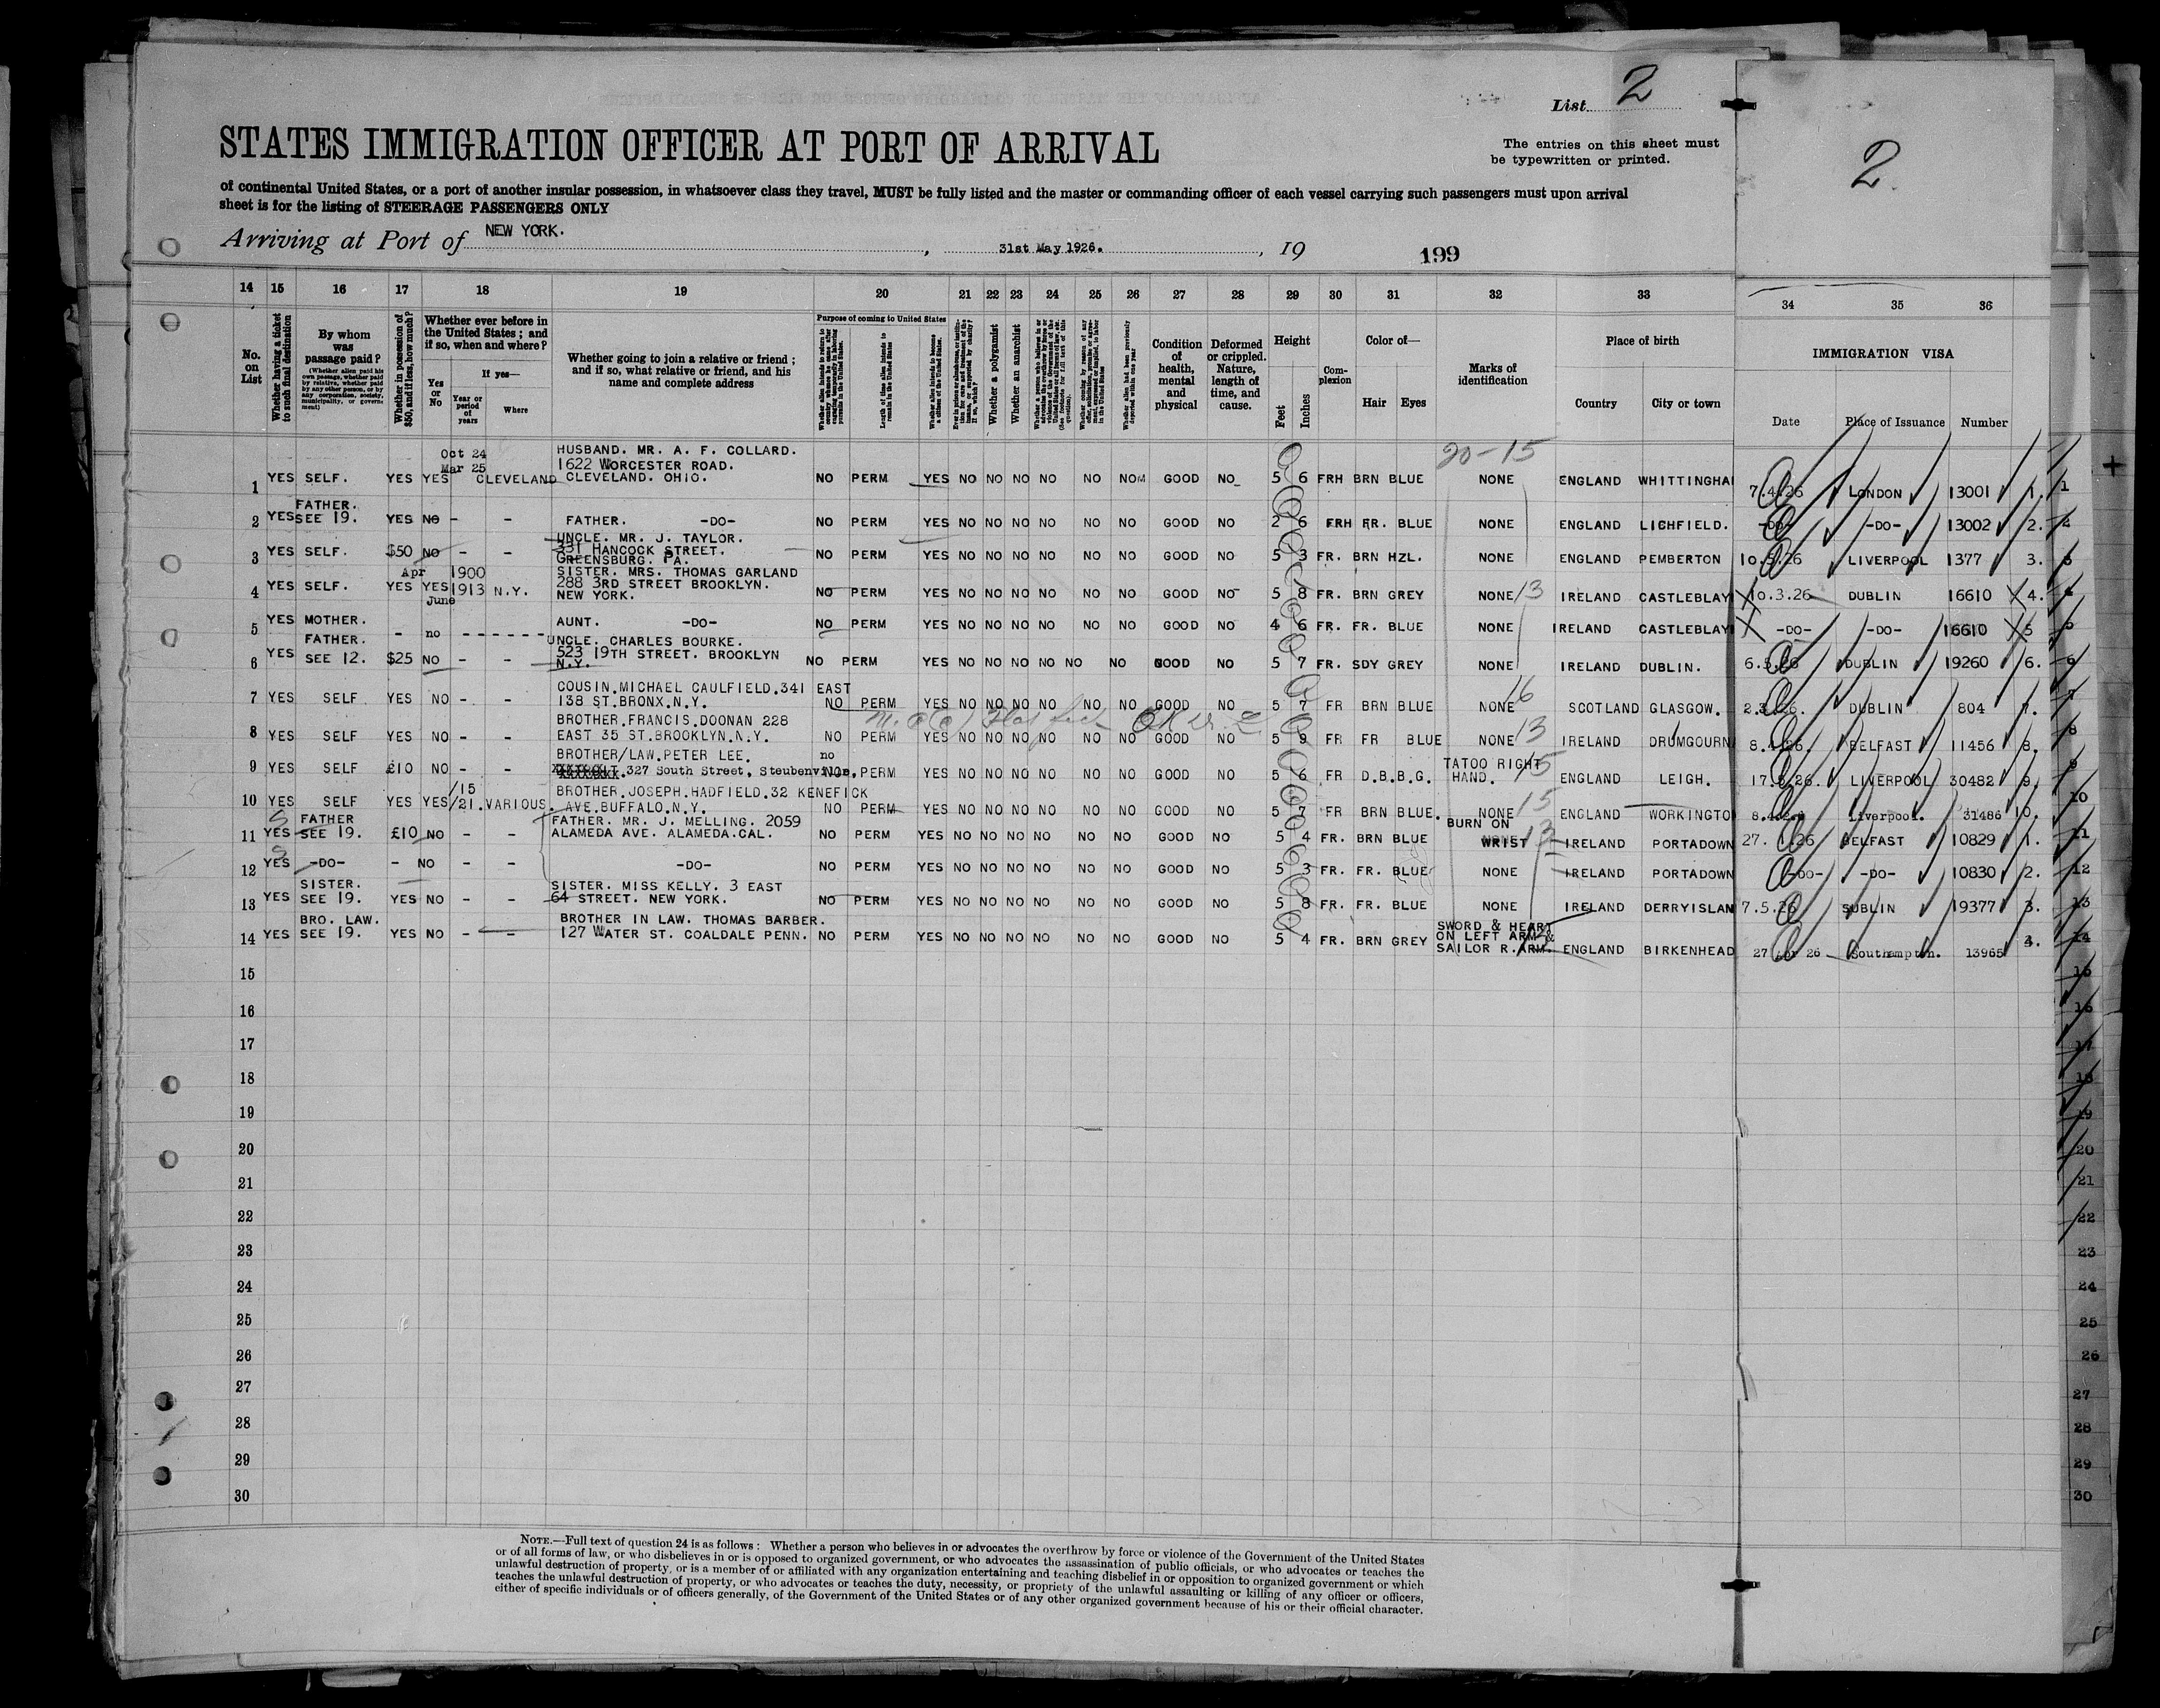 List 2
STATES IMMIGRATION OFFICER AT PORT OF ARRIVAL
The entries on this sheet must
be typewritten or printed.
2.
of continental United States, or a port of another insular possession, in whatsoever class they travel, MUST be fully listed and the master or commanding officer of each vessel carrying such passengers must upon arrival
sheet is for the listing of STEERAGE PASSENGERS ONLY
Arriving at Port of NEW YORK. , 31st May 1926. , 19 199
14 15 16 17 18 19 20 21 22 23 24 25 26 27 28 29 30 31 32 33 34 35 36
No. on List
Whether having a ticket to such final destination
By whom was passage paid?
(Whether alien paid his own passage, whether paid by relative, whether paid by any other person, or by any corporation, society, municipality, or government)
Whether in possession of $50, and if less, how much?
Whether ever before in the United States; and if so, when and where?
Yes or No
If yes—
Year or period of years
Where
Whether going to join a relative or friend; and if so, what relative or friend, and his name and complete address
Purpose of coming to United States
Length of time alien intends to remain in the United States
Whether alien intends to become a citizen of the United States
Whether a polygamist
Whether an anarchist
Condition of health, mental and physical
Deformed or crippled. Nature, length of time, and cause.
Height
Feet Inches
Complexion
Color of—
Hair Eyes
Marks of identification
Place of birth
Country City or town
IMMIGRATION VISA
Date Place of Issuance Number
20-15
Oct 24
Mar 25
HUSBAND. MR. A. F. COLLARD.
1622 WORCESTER ROAD.
1 YES SELF. YES YES CLEVELAND CLEVELAND. OHIO. NO PERM YES NO NO NO NO NO NO GOOD NO 5 6 FRH BRN BLUE NONE ENGLAND WHITTINGHA 7.4.26 LONDON 13001 1. 1
FATHER.
2 YES SEE 19. YES NO - - FATHER. -DO- NO PERM YES NO NO NO NO NO NO GOOD NO 2 6 FRH FR. BLUE NONE ENGLAND LICHFIELD. -DO- -DO- 13002 2. 2
UNCLE. MR. J. TAYLOR.
331 HANCOCK STREET.
3 YES SELF. $50 NO - - GREENSBURG. PA. NO PERM YES NO NO NO NO NO NO GOOD NO 5 3 FR. BRN HZL. NONE ENGLAND PEMBERTON 10.5.26 LIVERPOOL 1377 3. 3
Apr 1900 SISTER. MRS. THOMAS GARLAND
288 3RD STREET BROOKLYN.
4 YES SELF. YES YES 1913 N.Y. NEW YORK. NO PERM YES NO NO NO NO NO NO GOOD NO 5 8 FR. BRN GREY NONE 13 IRELAND CASTLEBLAY 10.3.26 DUBLIN 16610 4. 4
June
5 YES MOTHER. - no ------ AUNT. -DO- NO PERM YES NO NO NO NO NO NO GOOD NO 4 6 FR. FR. BLUE NONE IRELAND CASTLEBLAY -DO- -DO- 16610 5 5
FATHER. UNCLE. CHARLES BOURKE.
523 19TH STREET. BROOKLYN
6 YES SEE 12. $25 NO - - N.Y. NO PERM YES NO NO NO NO NO NO GOOD NO 5 7 FR. SDY GREY NONE IRELAND DUBLIN. DUBLIN 19260 6. 6
COUSIN.MICHAEL CAULFIELD.341 EAST
7 YES SELF YES NO - - 138 ST.BRONX.N.Y. NO PERM YES NO NO NO NO NO NO GOOD NO 5 7 FR BRN BLUE NONE 16 SCOTLAND GLASGOW. DUBLIN 804 7. 7
BROTHER.FRANCIS.DOONAN 228
8 YES SELF YES NO - - EAST 35 ST.BROOKLYN.N.Y. NO PERM YES NO NO NO NO NO NO GOOD NO 5 9 FR FR BLUE NONE 13 IRELAND DRUMGOURN BELFAST 11456 8. 8
BROTHER/LAW.PETER LEE. no
TATOO RIGHT
9 YES SELF £10 NO - - 327 South Street, Steubenville, PERM YES NO NO NO NO NO NO GOOD NO 5 6 FR D.B.B.G. HAND. 15 ENGLAND LEIGH. LIVERPOOL 30482 9. 9
/15 BROTHER.JOSEPH.HADFIELD.32 KENEFICK
10 YES SELF YES YES /21.VARIOUS. AVE.BUFFALO.N.Y. NO PERM YES NO NO NO NO NO NO GOOD NO 5 7 FR BRN BLUE. NONE 15 ENGLAND WORKINGTO Liverpool. 31486 10. 10
FATHER FATHER. MR. J. MELLING. 2059
BURN ON
11 YES SEE 19. £10 NO - - ALAMEDA AVE. ALAMEDA.CAL. NO PERM YES NO NO NO NO NO NO GOOD NO 5 4 FR. BRN BLUE WRIST 13 IRELAND PORTADOWN 27. 1.26 BELFAST 10829 1. 11
12 YES -DO- - NO - - -DO- NO PERM YES NO NO NO NO NO NO GOOD NO 5 3 FR. FR. BLUE NONE IRELAND PORTADOWN -DO- -DO- 10830 2. 12
SISTER. SISTER. MISS KELLY. 3 EAST
13 YES SEE 19. YES NO - - 64 STREET. NEW YORK. NO PERM YES NO NO NO NO NO NO GOOD NO 5 8 FR. FR. BLUE NONE IRELAND DERRYISLAN 7.5.26 SUBLIN 19377 3. 13
BRO. LAW. BROTHER IN LAW. THOMAS BARBER.
SWORD & HEART
ON LEFT ARM &
14 YES SEE 19. YES NO - - 127 WATER ST. COALDALE PENN. NO PERM YES NO NO NO NO NO NO GOOD NO 5 4 FR. BRN GREY SAILOR R.ARM. ENGLAND BIRKENHEAD 27 Apr 26 Southampton. 13965 14
15 15
16 16
17 17
18 18
19 19
20 20
21 21
22 22
23 23
24 24
25 25
26 26
27 27
28 28
29 29
30 30
NOTE.—Full text of question 24 is as follows: Whether a person who believes in or advocates the overthrow by force or violence of the Government of the United States
or of all forms of law, or who disbelieves in or is opposed to organized government, or who advocates the assassination of public officials, or who advocates or teaches the
unlawful destruction of property, or is a member of or affiliated with any organization entertaining and teaching disbelief in or opposition to organized government or which
teaches the unlawful destruction of property, or who advocates or teaches the duty, necessity, or propriety of the unlawful assaulting or killing of any officer or officers,
either of specific individuals or of officers generally, of the Government of the United States or of any other organized government because of his or their official character.